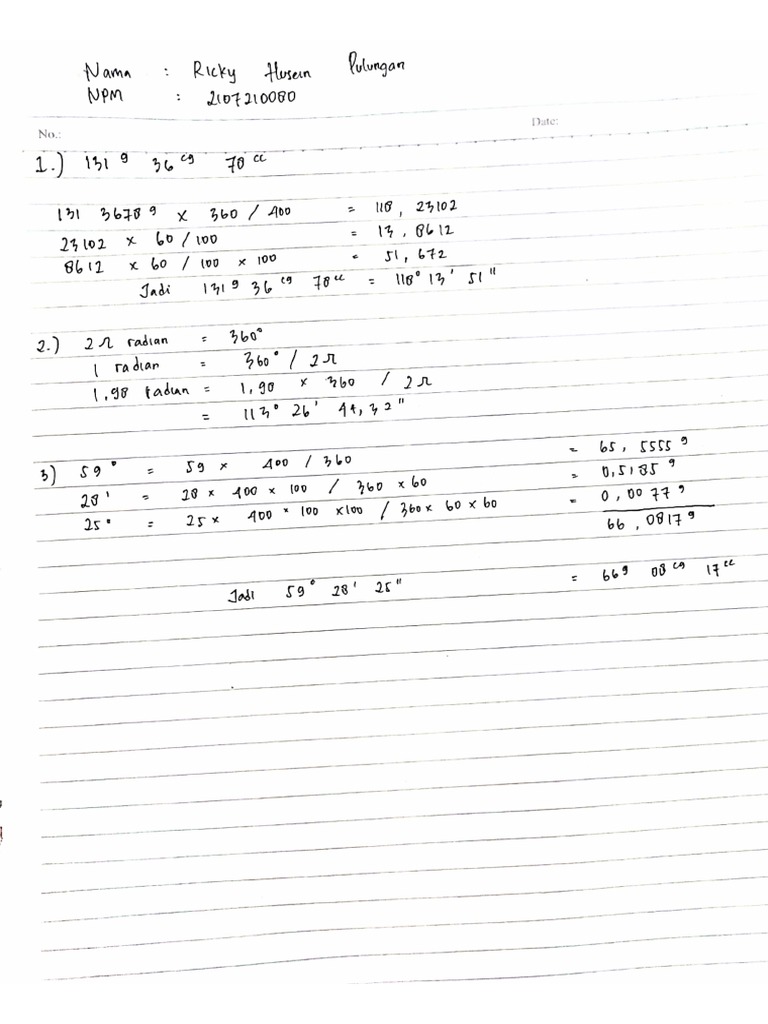 Nama : Ricky Husein Pulungan
NPM : 2107210080
No.: Date:
1.) 131 g 36 cg 78 cc
131 3678 g x 360 / 400 = 118, 23102
23102 x 60 / 100 = 13, 8612
8612 x 60 / 100 x 100 = 51, 672
Jadi 131 g 36 cg 78 cc = 118° 13' 51"
2.) 2π radian = 360°
1 radian = 360° / 2π
1,98 radian = 1,98 x 360 / 2π
= 113° 26' 44,32"
3) 59° = 59 x 400 / 360 = 65, 5555 g
28' = 28 x 400 x 100 / 360 x 60 = 0,5185 g
25" = 25 x 400 x 100 x 100 / 360 x 60 x 60 = 0,0077 g
66, 0817 g
Jadi 59° 28' 25" = 66 g 08 cg 17 cc